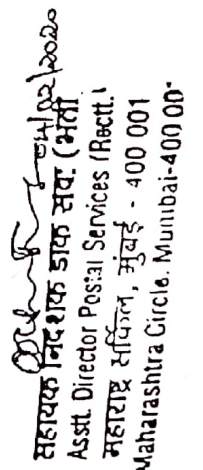 04/02/2020
सहायक निदेशक डाक सेवा (भर्ती
Asstt. Director Postal Services (Rectt.)
महाराष्ट्र सर्कल, मुंबई - 400 001
Maharashtra Circle. Mumbai-400 00